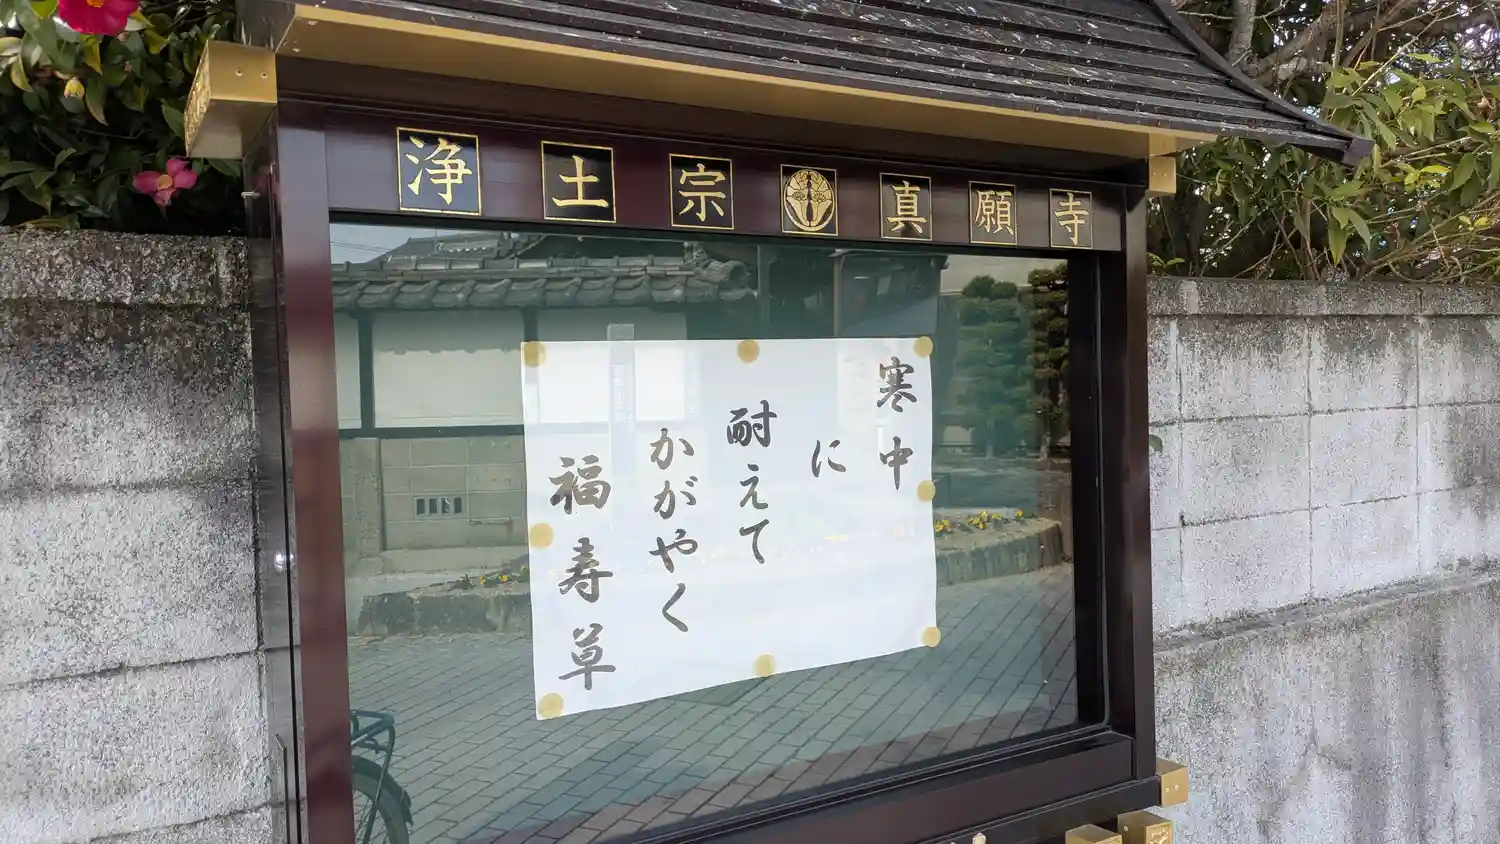 浄土宗 真願寺
寒中
に
耐えて
かがやく
福寿草